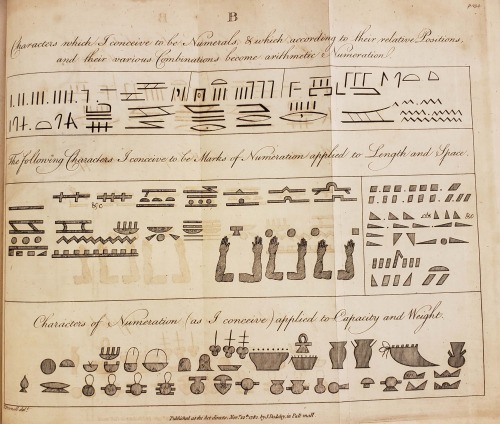 B
Characters which I conceive to be Numerals, & which according to their relative Positions,
and their various Combinations become arithmetic Numeration.
The following Characters I conceive to be Marks of Numeration applied to Length and Space.
&c
&c
&c
Characters of Numeration (as I conceive) applied to Capacity and Weight.
Published as the Act directs, Novr.
by J. Dodsley, in Pall-mall.